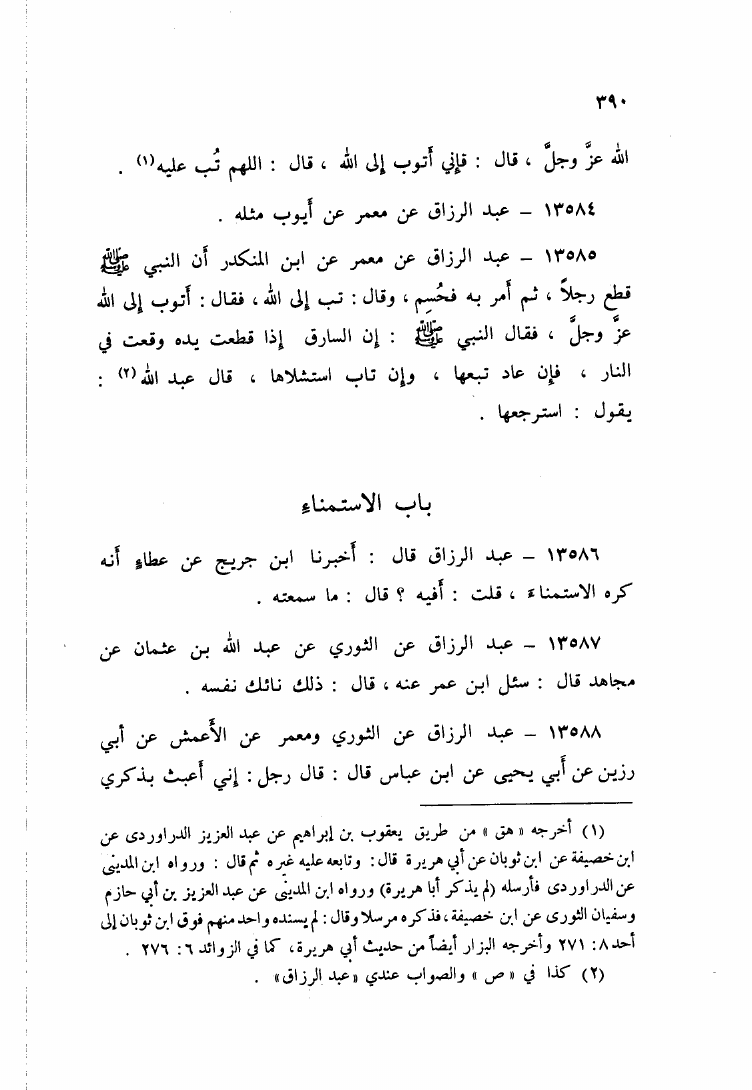 ٣٩٠
الله عزَّ وجلَّ ، قال : فإني أتوب إلى الله ، قال : اللهم تُب عليه(١) .
١٣٥٨٤ – عبد الرزاق عن معمر عن أيوب مثله .
١٣٥٨٥ – عبد الرزاق عن معمر عن ابن المنكدر أن النبي ﷺ
قطع رجلاً ، ثم أمر به فحُسِم ، وقال : تب إلى الله ، فقال : أتوب إلى الله
عزَّ وجلَّ ، فقال النبي ﷺ : إن السارق إذا قطعت يده وقعت في
النار ، فإن عاد تبعها ، وإن تاب استشلاها ، قال عبد الله(٢) :
يقول : استرجعها .
باب الاستمناء
١٣٥٨٦ – عبد الرزاق قال : أخبرنا ابن جريج عن عطاءٍ أنه
كره الاستمناءَ ، قلت : أفيه ؟ قال : ما سمعته .
١٣٥٨٧ – عبد الرزاق عن الثوري عن عبد الله بن عثمان عن
مجاهد قال : سئل ابن عمر عنه ، قال : ذلك نائك نفسه .
١٣٥٨٨ – عبد الرزاق عن الثوري ومعمر عن الأعمش عن أبي
رزين عن أبي يحيى عن ابن عباس قال : قال رجل : إني أعبث بذكري
(١) أخرجه «هق» من طريق يعقوب بن إبراهيم عن عبد العزيز الدراوردى عن
ابن خصيفة عن ابن ثوبان عن أبي هريرة قال : وتابعه عليه غيره ثم قال : ورواه ابن المديني
عن الدراوردى فأرسله (لم يذكر أبا هريرة) ورواه ابن المديني عن عبد العزيز بن أبي حازم
وسفيان الثورى عن ابن خصيفة ، فذكره مرسلا وقال : لم يسنده واحد منهم فوق ابن ثوبان إلى
أحد ٨ : ٢٧١ وأخرجه البزار أيضاً من حديث أبي هريرة ، كما في الزوائد ٦ : ٢٧٦ .
(٢) كذا في «ص» والصواب عندي «عبد الرزاق» .